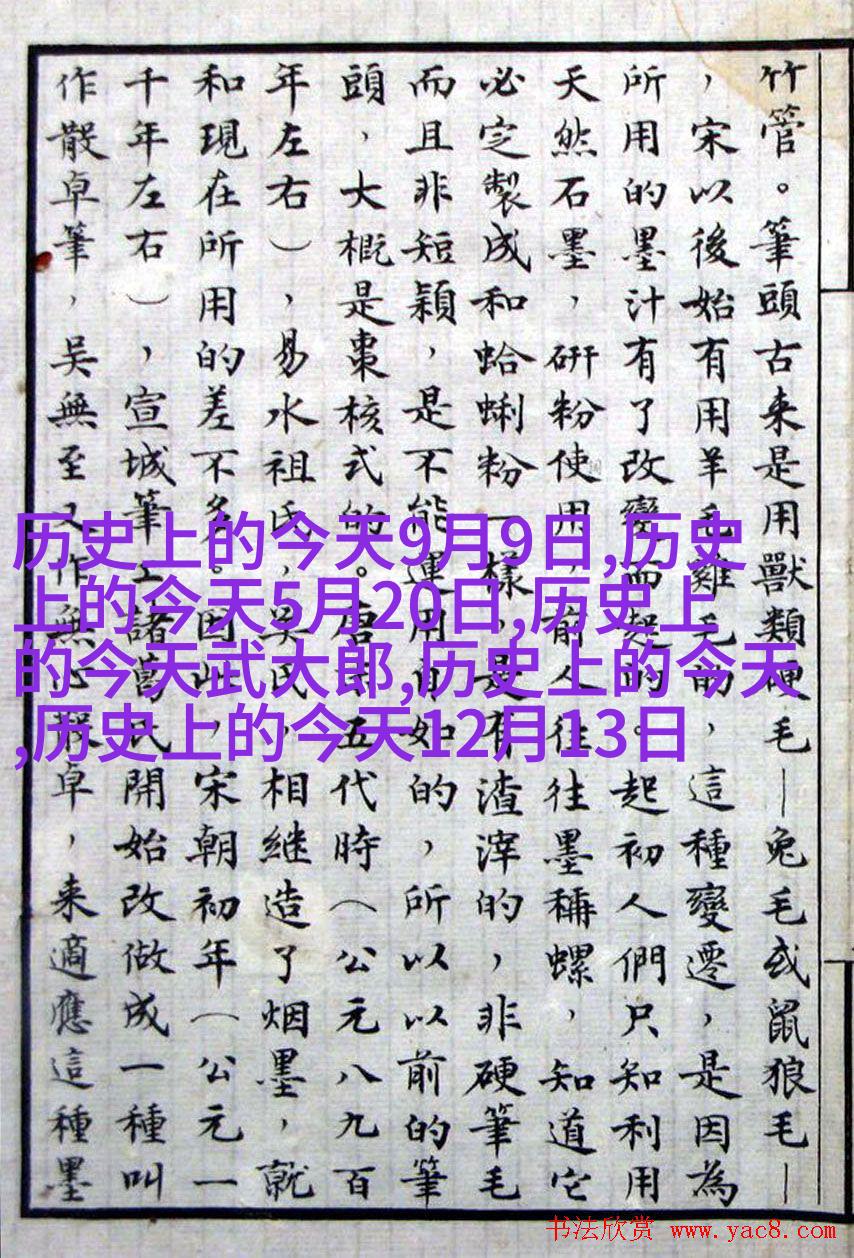 竹管。筆頭古来是用獸類硬毛—兔毛或鼠狼毛—
，宋以後始有用羊毛雞毛的，這種變遷，是因為
所用的墨汁有了改變而起的。起初人們只知利用
天然石墨，研粉使用，前人往往墨稱螺，知道它
必定製成和蛤蜊粉一樣，是有渣滓的，非硬筆毛
而且非短穎，是不能運用自如的，所以以前的筆
頭，大概是棗核式的。唐末五代時（公元八九百
年左右），易水祖氏，吳氏，相继造了烟墨，就
和現在所用的差不多。因此，宋朝初年（公元一
千年左右），宣城筆工諸葛氏開始改做成一種叫
作散卓筆，吴無至又作無心散卓，来適應這種墨
历史上的今天9月9日,历史
上的今天5月20日,历史上
的今天武大郎,历史上的今天
,历史上的今天12月13日
书法欣赏 www.yac8.com